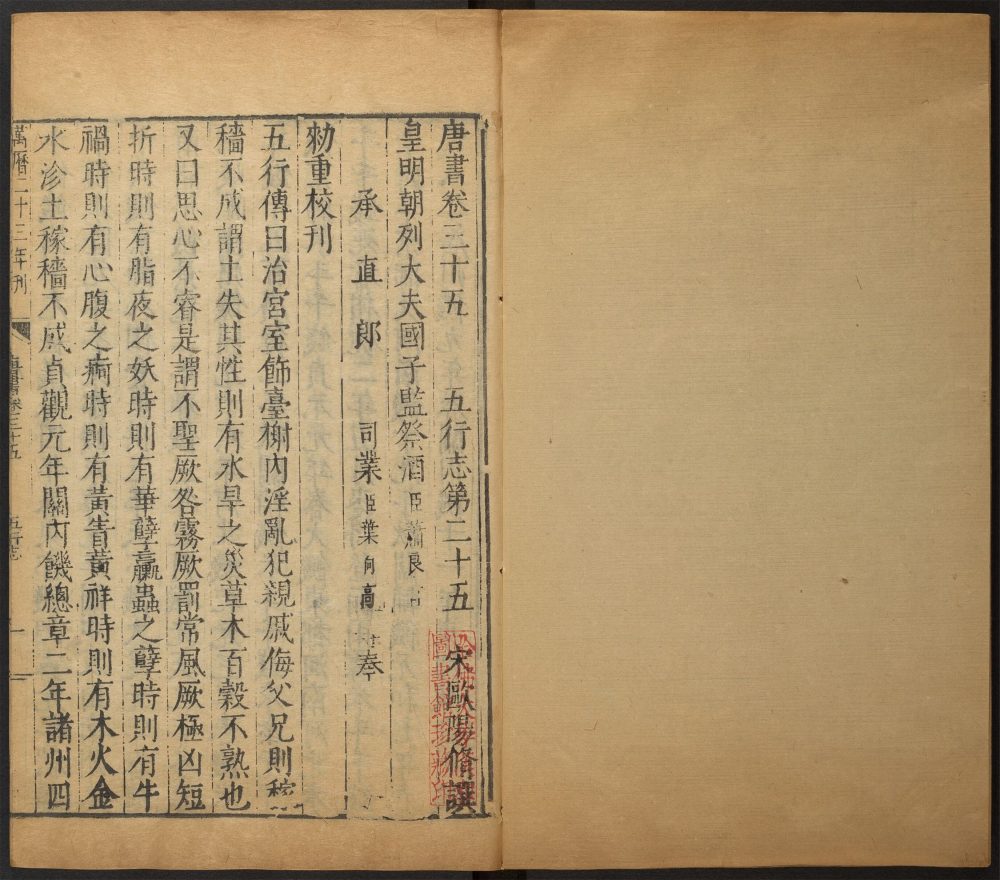 唐書卷三十五　五行志第二十五　宋歐陽脩譔
皇明朝列大夫國子監祭酒臣蕭良有
承直郎　司業臣葉向高等奉
勑重校刊
五行傳曰治宮室飾臺榭內淫亂犯親戚侮父兄則稼
穡不成謂土失其性則有水旱之災草木百穀不熟也
又曰思心不睿是謂不聖厥咎霧厥罰常風厥極凶短
折時則有脂夜之妖時則有華孽時則有蠃蟲之孽時則有牛
禍時則有心腹之痾時則有黃眚黃祥時則有木火金
水沴土稼穡不成貞觀元年關內饑總章二年諸州四
萬曆二十三年刊
唐書卷三十五
五行志
一
圖書